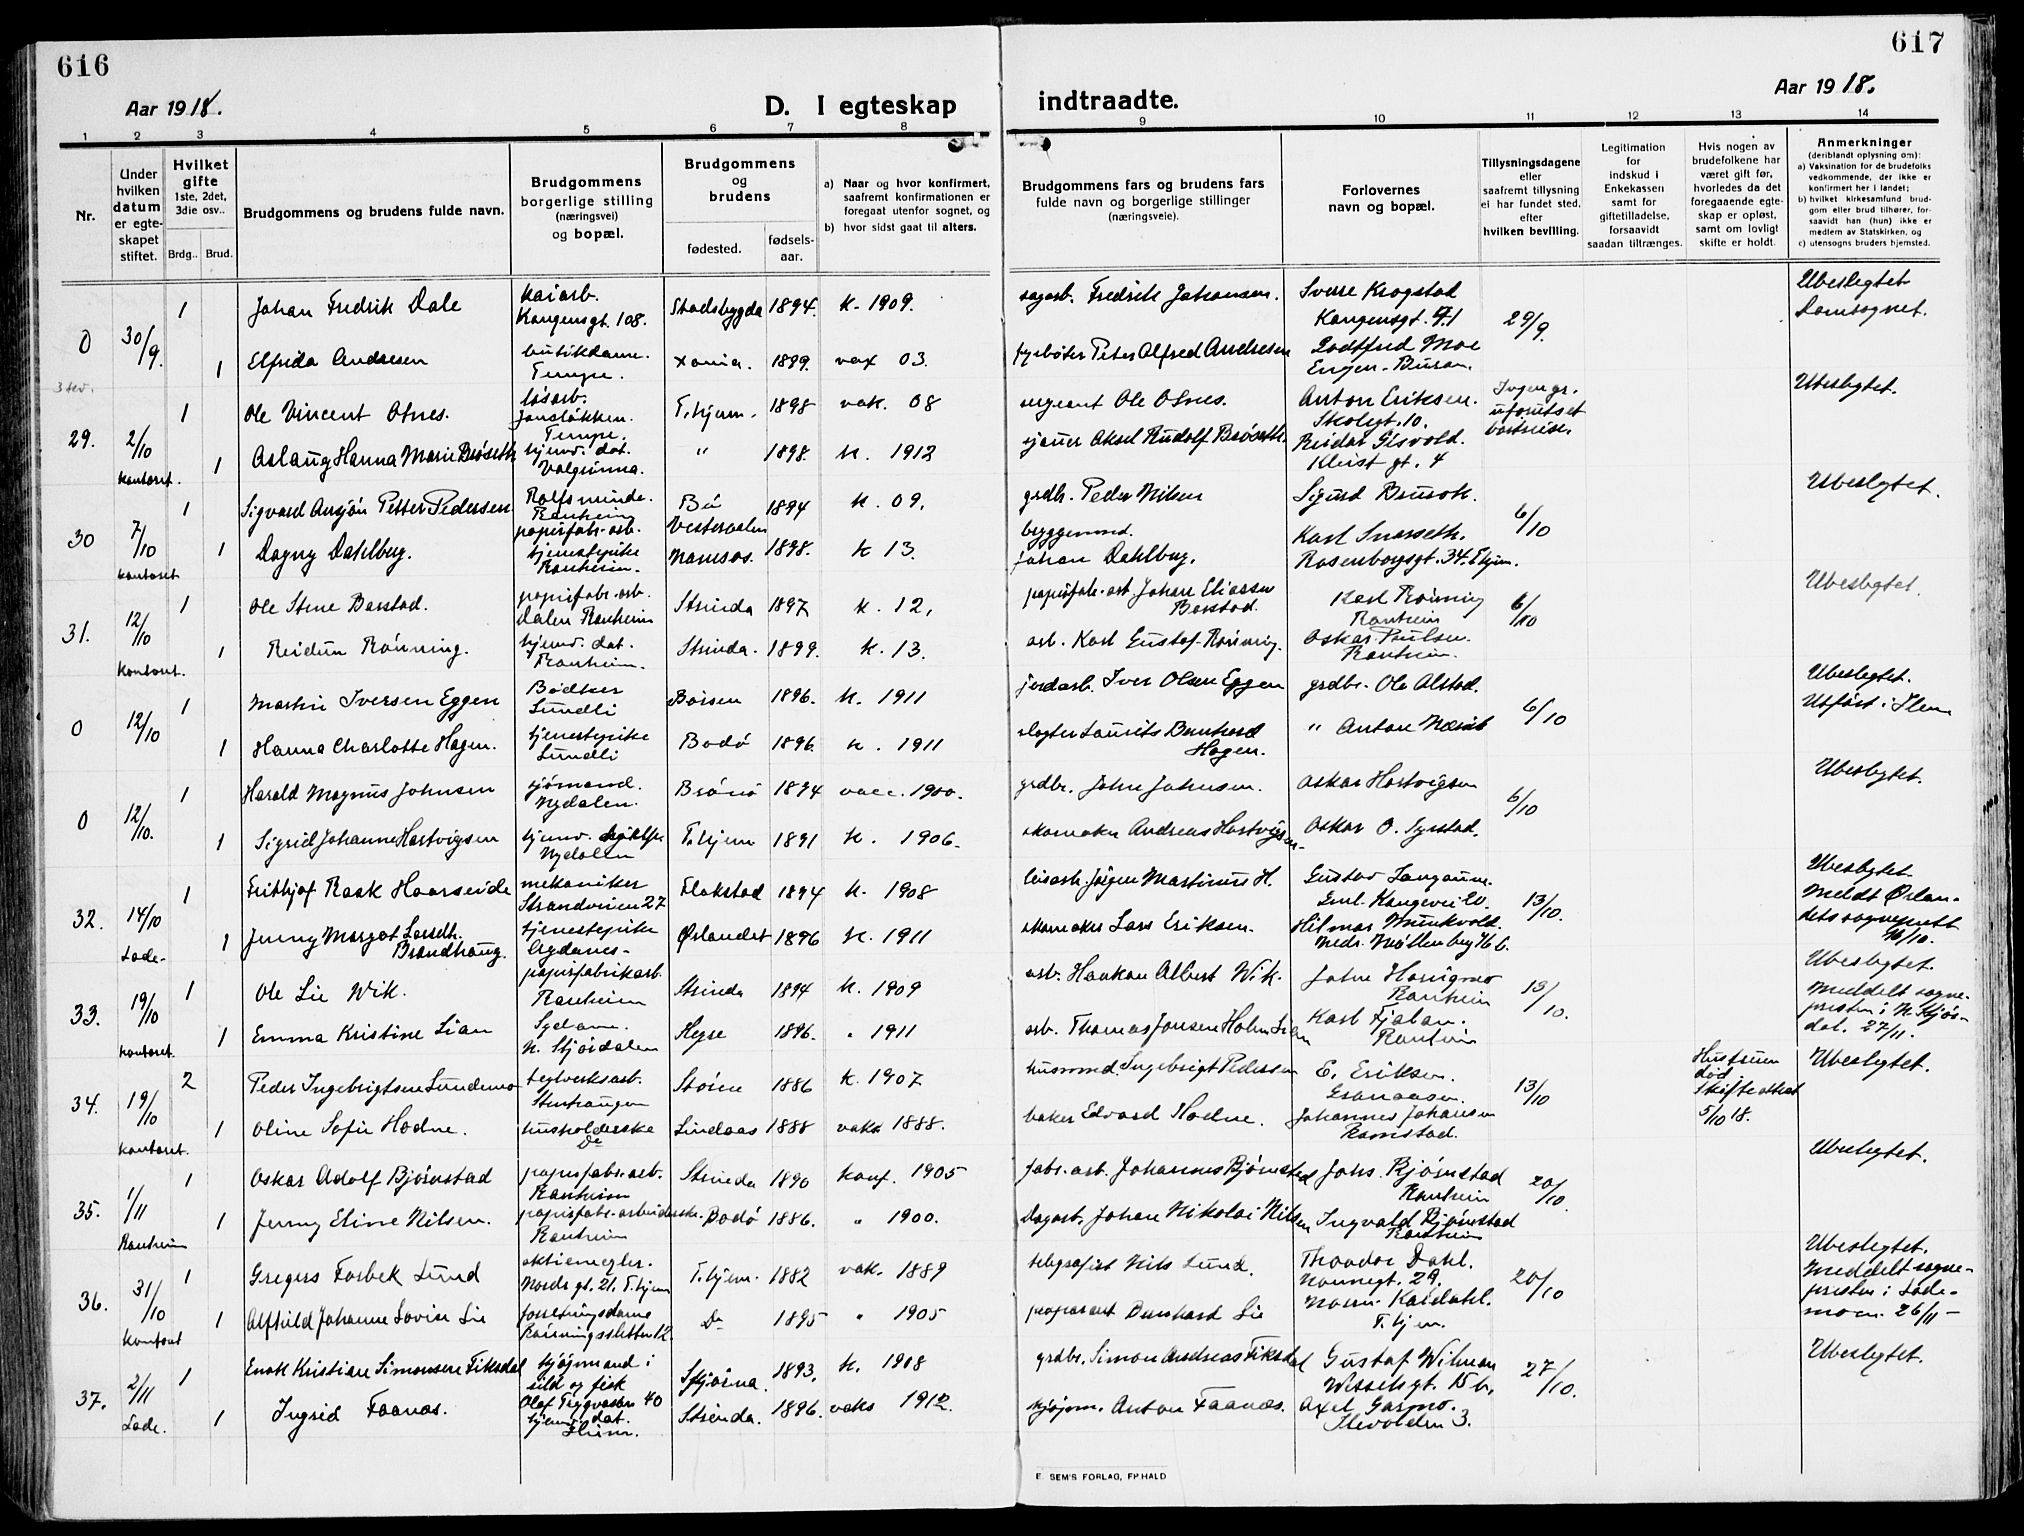 616
617
Aar 1918.
Aar 1918.
D. I egteskap
indtraadte.
1 2 3 4 5 6 7 8 9 10 11 12 13 14
Nr.
Under hvilken datum er egteskapet stiftet.
Hvilket gifte
1ste, 2det, 3die osv..
Brdg.. Brud.
Brudgommens og brudens fulde navn.
Brudgommens borgerlige stilling (næringsvei) og bopæl.
Brudgommens og brudens
fødested.
fødsels-aar.
a) Naar og hvor konfirmert, saafremt konfirmationen er foregaat utenfor sognet, og
b) hvor sidst gaat til alters.
Brudgommens fars og brudens fars fulde navn og borgerlige stillinger (næringsveie).
Forlovernes navn og bopæl.
Tillysningsdagene eller saafremt tillysning ei har fundet sted, efter hvilken bevilling.
Legitimation for indskud i Enkekassen samt for giftetilladelse, forsaavidt saadan tiltrænges.
Hvis nogen av brudefolkene har været gift før, hvorledes da det foregaaende egteskap er opløst, samt om lovligt skifte er holdt.
Anmerkninger
(deriblandt oplysning om):
a) Vaksination for de brudefolks vedkommende, der ikke er konfirmert her i landet;
b) hvilket kirkesamfund brudgom eller brud tilhører, forsaavidt han (hun) ikke er medlem av Statskirken, og
c) utensogns bruders hjemsted.
0 30/9 1 Johan Fredrik Dale kaiarb. Kongensgt. 108. Stadsbygda 1894. k. 1909. sagarb. Fredrik Johansen. Sverre Krogstad Kongensgt. 91 29/9 Ubeslegtet Domsognet.
1 Elfrida Andresen butikdame. Tempe. Xania. 1899. vax 03. fyrbøter Peter Alfred Andresen Godtfrid Moe Engen - Buran.
29. 2/10 kontoret. 1 Ole Vincent Otnes. løsarb. Jonsløkken. Tempe. T.hjem. 1898 vak. 08 sergeant Ole Otnes. Anton Eriksen. Skolegt. 10. Ubeslegtet.
1 Aslaug Hanna Marie Brøseth hjemv. dat. Valgrinna. " 1898. k. 1912 sjauer Aksel Rudolf Brøseth Reidar Gisvold. Kleist gt. 4
30 7/10 kontoret 1 Sigvard Ansjøn Petter Pedersen Rolfsminde. Ranheim papirfabr. arb. Bø Vesteraalen 1894 k. 09. grdbr. Peder Nilsen Sigurd Brusok. 6/10 Ubeslegtet.
1 Dagny Dahlberg. tjenestepike Ranheim. Namsos. 1898. k 13. byggemd. Johan Dahlberg. Karl Snasseth. Rosenborgsgt. 34. T.hjem.
31. 12/10 kontoret. 1 Ole Stene Barstad. papirfabr. arb. Dalen Ranheim Strinda 1897 k. 12. papirfabr. arb. Johan Eliassen Barstad. Karl Rønning Ranheim 6/10 Ubeslegtet.
1 Reidun Rønning. hjemv. dat. Ranheim. Strinda. 1899. k. 13. arb. Karl Gustaf Rønning. Oskar Paulsen. Ranheim.
0 12/10 1 Martin Iversen Eggen Bødker Lundli Børsen 1896. k. 1911 jordarb. Iver Olsen Eggen grdbr. Ole Alstad. 6/10 Ubeslegtet. Utført i Ilen
1 Hanna Charlotte Hagen. tjenestepike Lundli Bodø 1896. k. 1911 slagter Laurits Bernhard Hagen. " Anton Næsset
0 12/10. 1 Harald Magnus Johnsen sjømand. Nydalen. Brønø 1894 vacc. 1900. grdbr. John Johnsen. Oskar Hartvigsen 6/10 Ubeslegtet.
1 Sigrid Johanne Hartvigsen hjemv. Nydalen T.hjem 1891 k. 1906. skomaker Andreas Hartvigsen Oskar O. Syrstad.
32. 14/10 Lade. 1 Frithjof Rask Haarseide mekaniker Strandveien 27 Flakstad 1894 k. 1908 leiarb. Jørgen Martinus H. Gustav Langaune. Gml. Kongevei 60. 13/10. Ubeslegtet Meldt Ørlandets sogneprest 16/10.
1 Jenny Margot Loredh. Brandhaug. tjenestepike Ørlandet 1896 k. 1911 skomaker Lars Eriksen. Hilmar Munkvold. Nedr. Møllenberg 76 b.
33. 19/10 kontoret. 1 Ole Lie Wik. papirfabrikarb. Ranheim Strinda 1894 k. 1909 arb. Haakon Albert Wik. John Haugmo Ranheim 13/10. Ubeslegtet. Meddelt sogneprest i N. Stjørdal. 27/11.
1 Emma Kristine Lian Sydame. N. Stjørdalen Hegre 1896. " 1911 arb. Thomas Jonsen Holm Lian Karl Fjalan. Ranheim
34. 19/10 kontoret. 2 Peder Ingebrigtsen Lundemo teglverksarb. Stenhaugen Støren 1886 k. 1907 husmand. Ingebrigt Pedersen E. Eriksen. Granaasen. 13/10 Hustruen død. Skifteattest 5/10 18. Ubeslegtet.
1 Oline Sofie Hodne. husholderske Do Lindaas 1888 vaks 1888. baker Edvard Hodne. Johannes Johansen Ramstad.
35. 1/11 Ranheim 1 Oskar Adolf Bjørnstad papirfabr. arb. Ranheim Strinda 1890 konf. 1905 fabr. arb. Johannes Bjørnstad Johs. Bjørnstad Ranheim 20/10. Ubeslegtet.
1 Jenny Eline Nilsen. papirfabr. arbeiderske. Ranheim Bodø 1886. " 1900. Dagarb. Johan Nikolai Nilsen Ingvald Bjørnstad Ranheim
36. 31/10 kontoret 1 Gregers Forbek Lund aktiemegler. Nordr gt. 21. T.hjem T.hjem. 1882 vak. 1889 telegrafist Nils Lund. Theodor Dahl. Nonnegt. 29. 20/10 Ubeslegtet. Meddelt sogneprester i Lademoen. 26/11 -
1 Alfhild Johanne Lovise Lie forretningsdame Rønningsletten 12. Do 1895 " 1905 papirarb Bernhard Lie Kaldahl. T.hjem.
37. 2/11 Lade. 1 Enok Kristian Simonsen Fiksdal kjøpmand i sild og fisk Olaf Trygvasøn 40 Stjørna. 1893. k. 1908 grdbr. Simon Andreas Fiksdal Gustaf Wilman Wesselsgt. 15 b. 27/10. Ubeslegtet.
1 Ingrid Faanas. hjemv. dat. Strinda. 1896. vaks 1912. kjøpm. Anton Faanæs. Axel Garmo. Ilevolden 3.
E. SEM'S FORLAG, FR.HALD